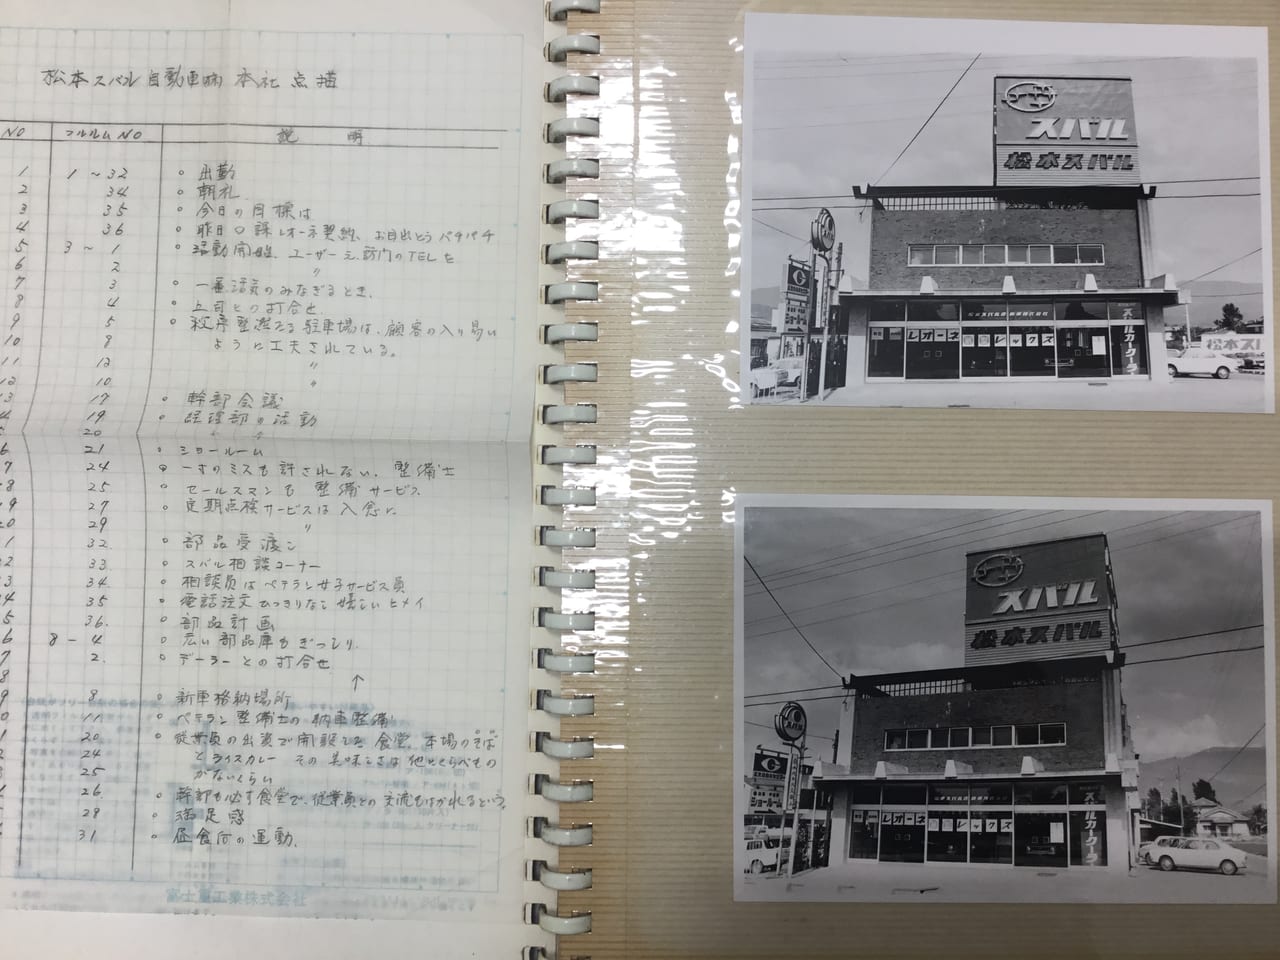 松本スバル自動車㈱ 本社点描
NO フルルムNO 説 明
1 1~32 ◦ 出勤
2 34 ◦ 朝礼
3 35 ◦ 今日の目標は
4 36 ◦ 昨日〇課レオーネ契約、お目出とうパチパチ
5 3~1 ◦ 活動開始、ユーザーを訪問のTELを
6 2 〃
7 3 ◦ 一番活気のみなぎるとき、
8 4 ◦ 上司との打合せ
9 5 ◦ 秩序整然たる駐車場は、顧客の入り易い
10 8 ように工夫されている。
11 12 〃
12 10 〃
3 17 ◦ 幹部会議
4 19 ◦ 経理部の活動
5 20 〃
6 21 ◦ ショールーム
7 24 ◦ 一寸のミスも許されない、整備士
8 25 ◦ セールスマンも整備サービス
9 27 ◦ 定期点検サービスは入念に
0 29 〃
1 32 ◦ 部品受渡し
2 33 ◦ スバル相談コーナー
3 34 ◦ 相談員はベテラン女子サービス員
4 35 ◦ 電話注文ひっきりなし嬉しいヒメイ
5 36 ◦ 部品計画
6 8-4 ◦ 広い部品庫もぎっしり
7 2 ◦ デーラーとの打合せ
8 ↑
9 8 ◦ 新車格納場所
0 11 ◦ ベテラン整備士の納車整備
1 20 ◦ 従業員の出資で開設した食堂、本場のそば
2 24 とライスカレー その美味しさは他とくらべもの
3 25 がないくらい
26 ◦ 幹部も必ず食堂で、従業員との交流もはかれるという。
28 ◦ 満足感
31 ◦ 昼食后の運動、
富士重工業株式会社
スバル
松本スバル
スバル
ショールーム
レオーネ
レックス
スバルカークーラー
松本ス
スバル
松本スバル
スバル
ショールーム
レオーネ
レックス
スバルカークーラー